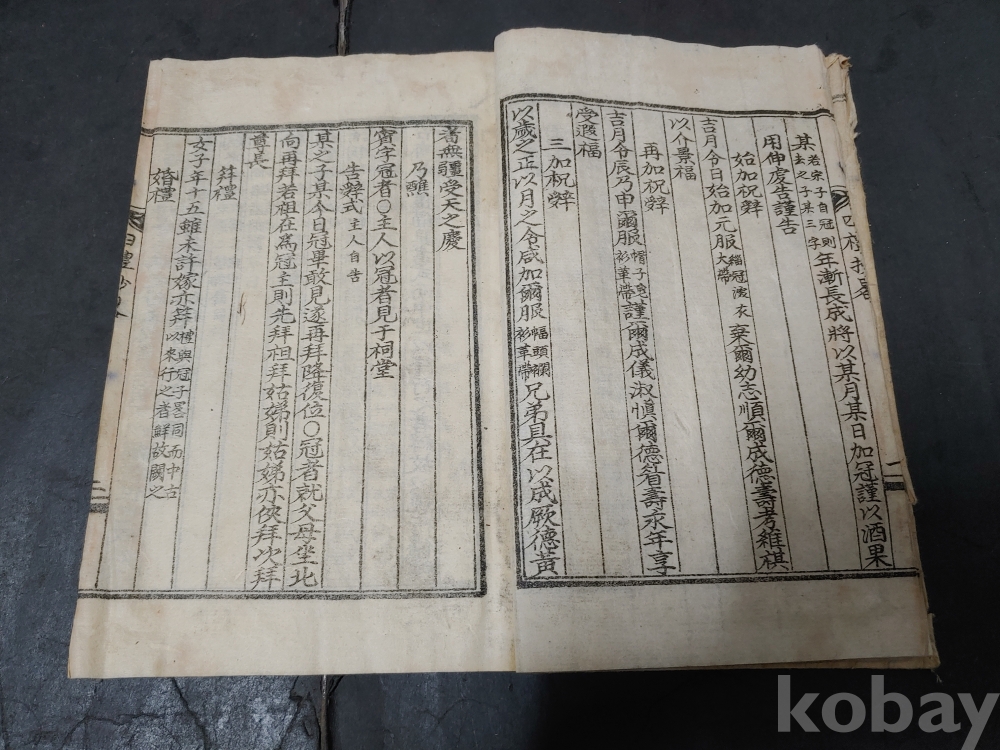 某若宋子自冠則去之子某三字年漸長成將以某月某日加冠謹以酒果
用伸虔告謹告
始加祝辭
吉月令日始加元服緇冠深衣大帶棄爾幼志順爾成德壽考維祺
以介景福
再加祝辭
吉月令辰乃申爾服帽子皂衫革帶謹爾威儀淑愼爾德眉壽永年享
受遐福
三加祝辭
以歲之正以月之令咸加爾服幞頭襴衫革帶兄弟具在以成厥德黃
耈無疆受天之慶
乃醮
賓字冠者〇主人以冠者見于祠堂
告辭式主人自告
某之子某今日冠畢敢見遂再拜降復位〇冠者就父母坐北
向再拜若祖在爲冠主則先拜祖拜姑姊則姑姊亦俠拜以拜
尊長
笄禮
女子年十五雖未許嫁亦笄禮與冠子畧同而中古以來行之者鮮故闕之
婚禮
二
kobay